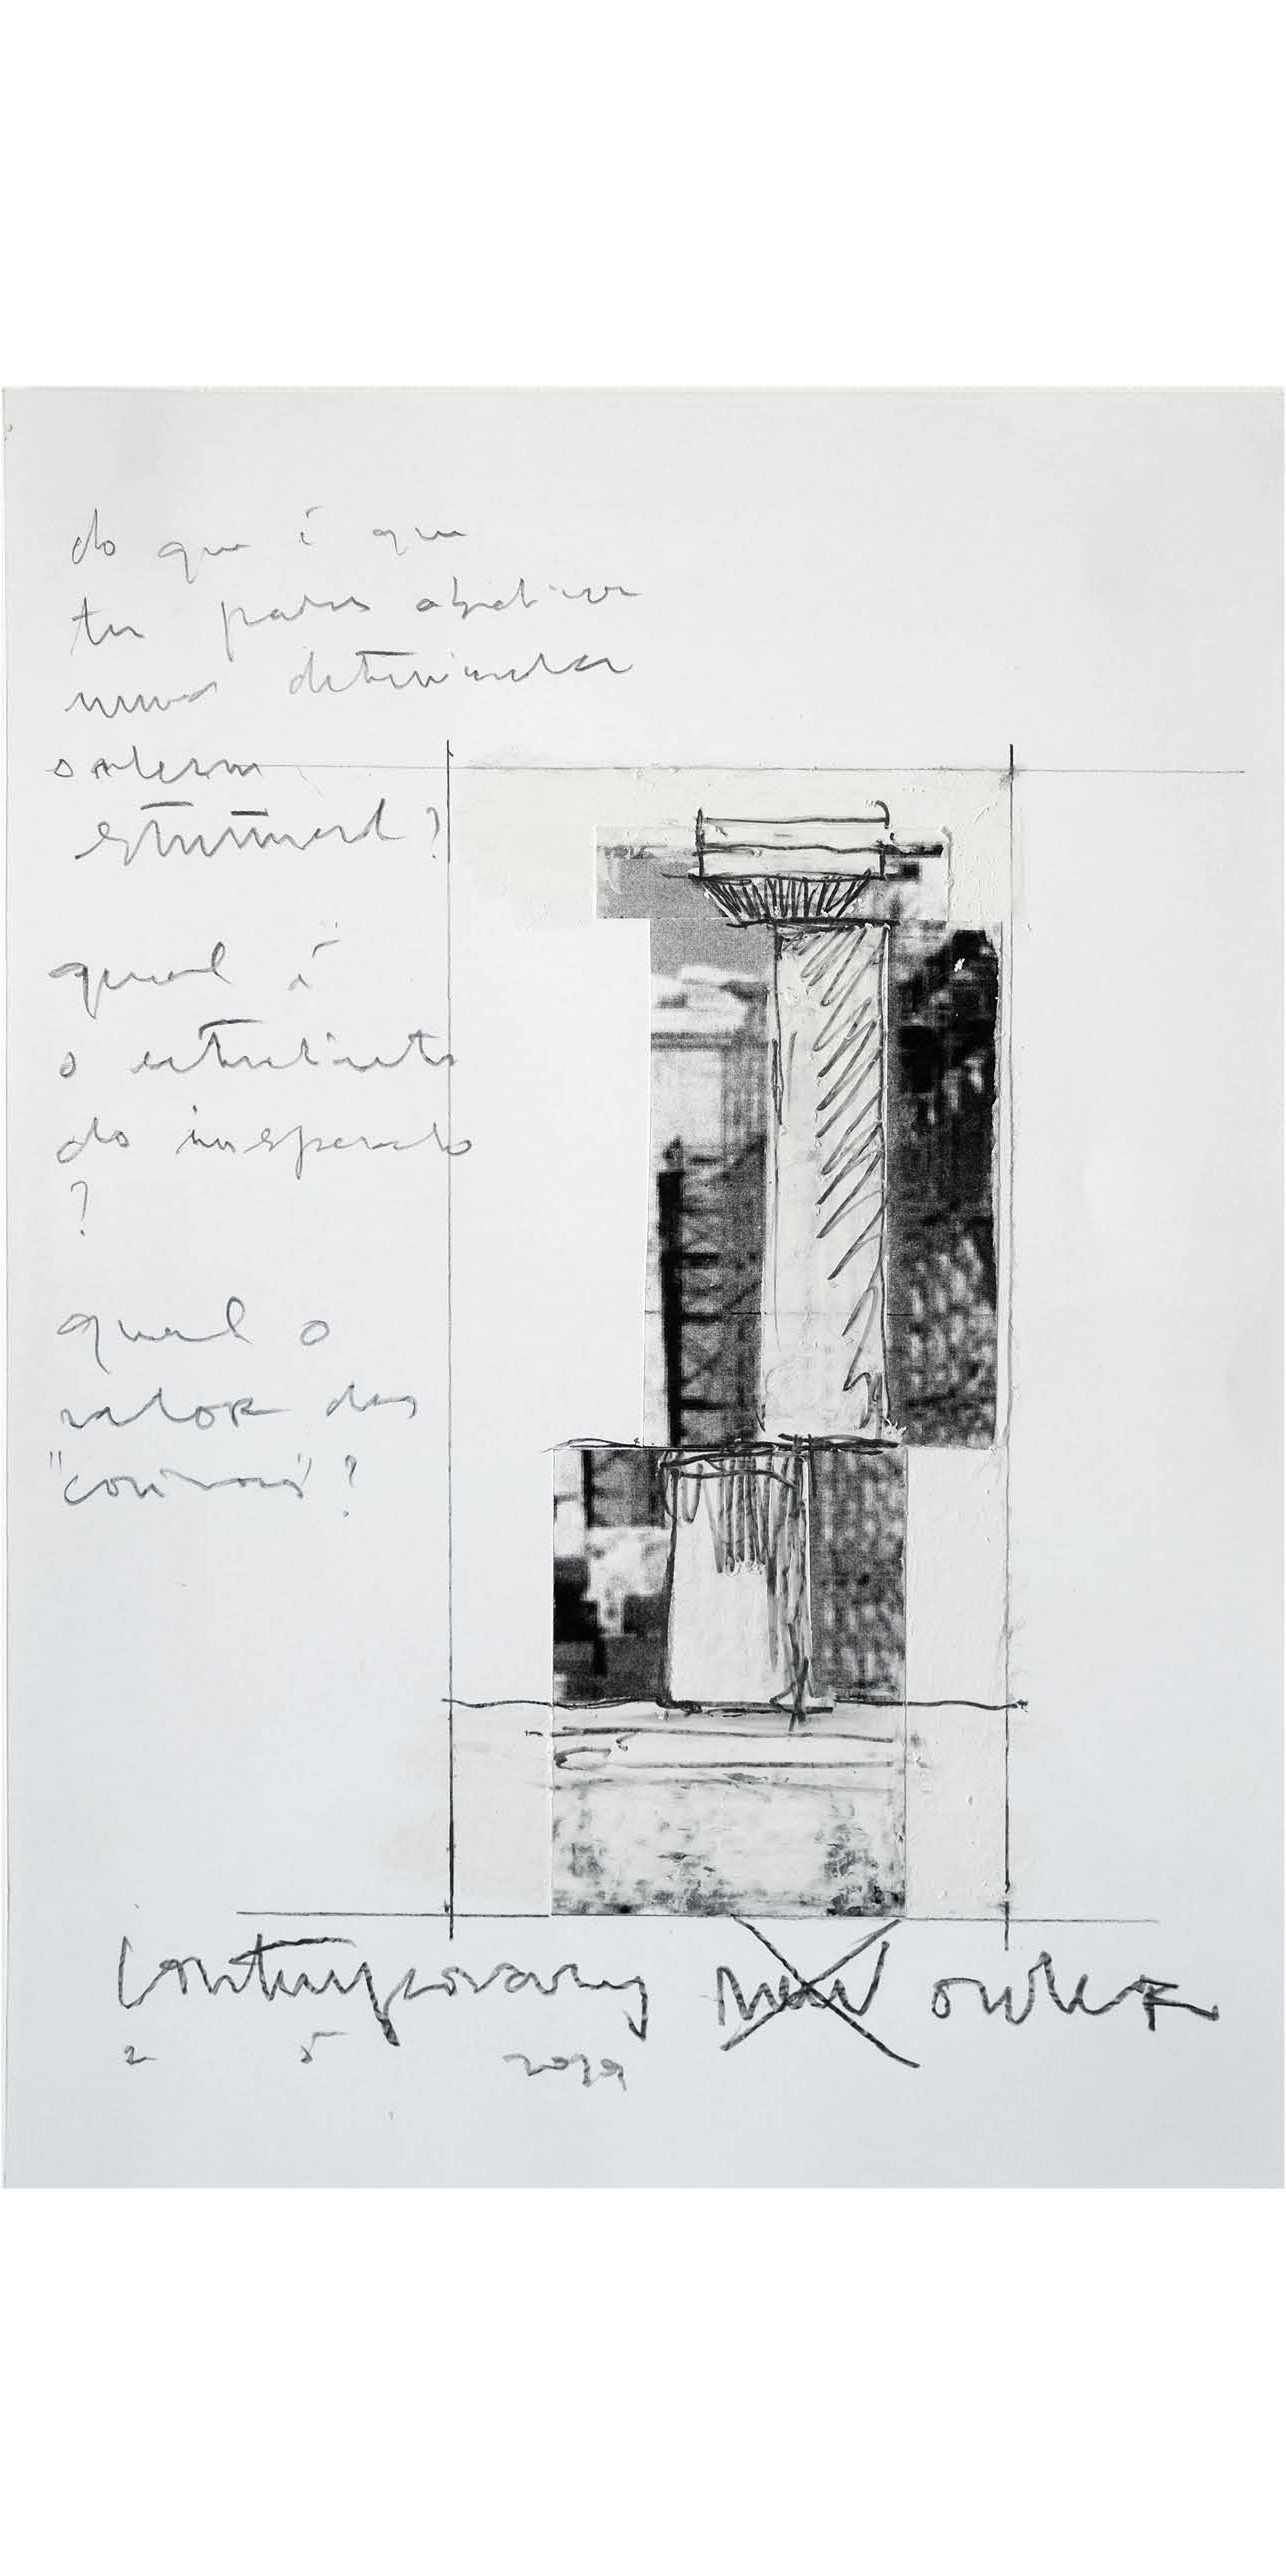 do que é que
tu podes abdicar
numa determinada
ordem
estrutural?
qual é
o estatuto
do inesperado
?
qual o
valor das
contemporary new order
2 5 2020